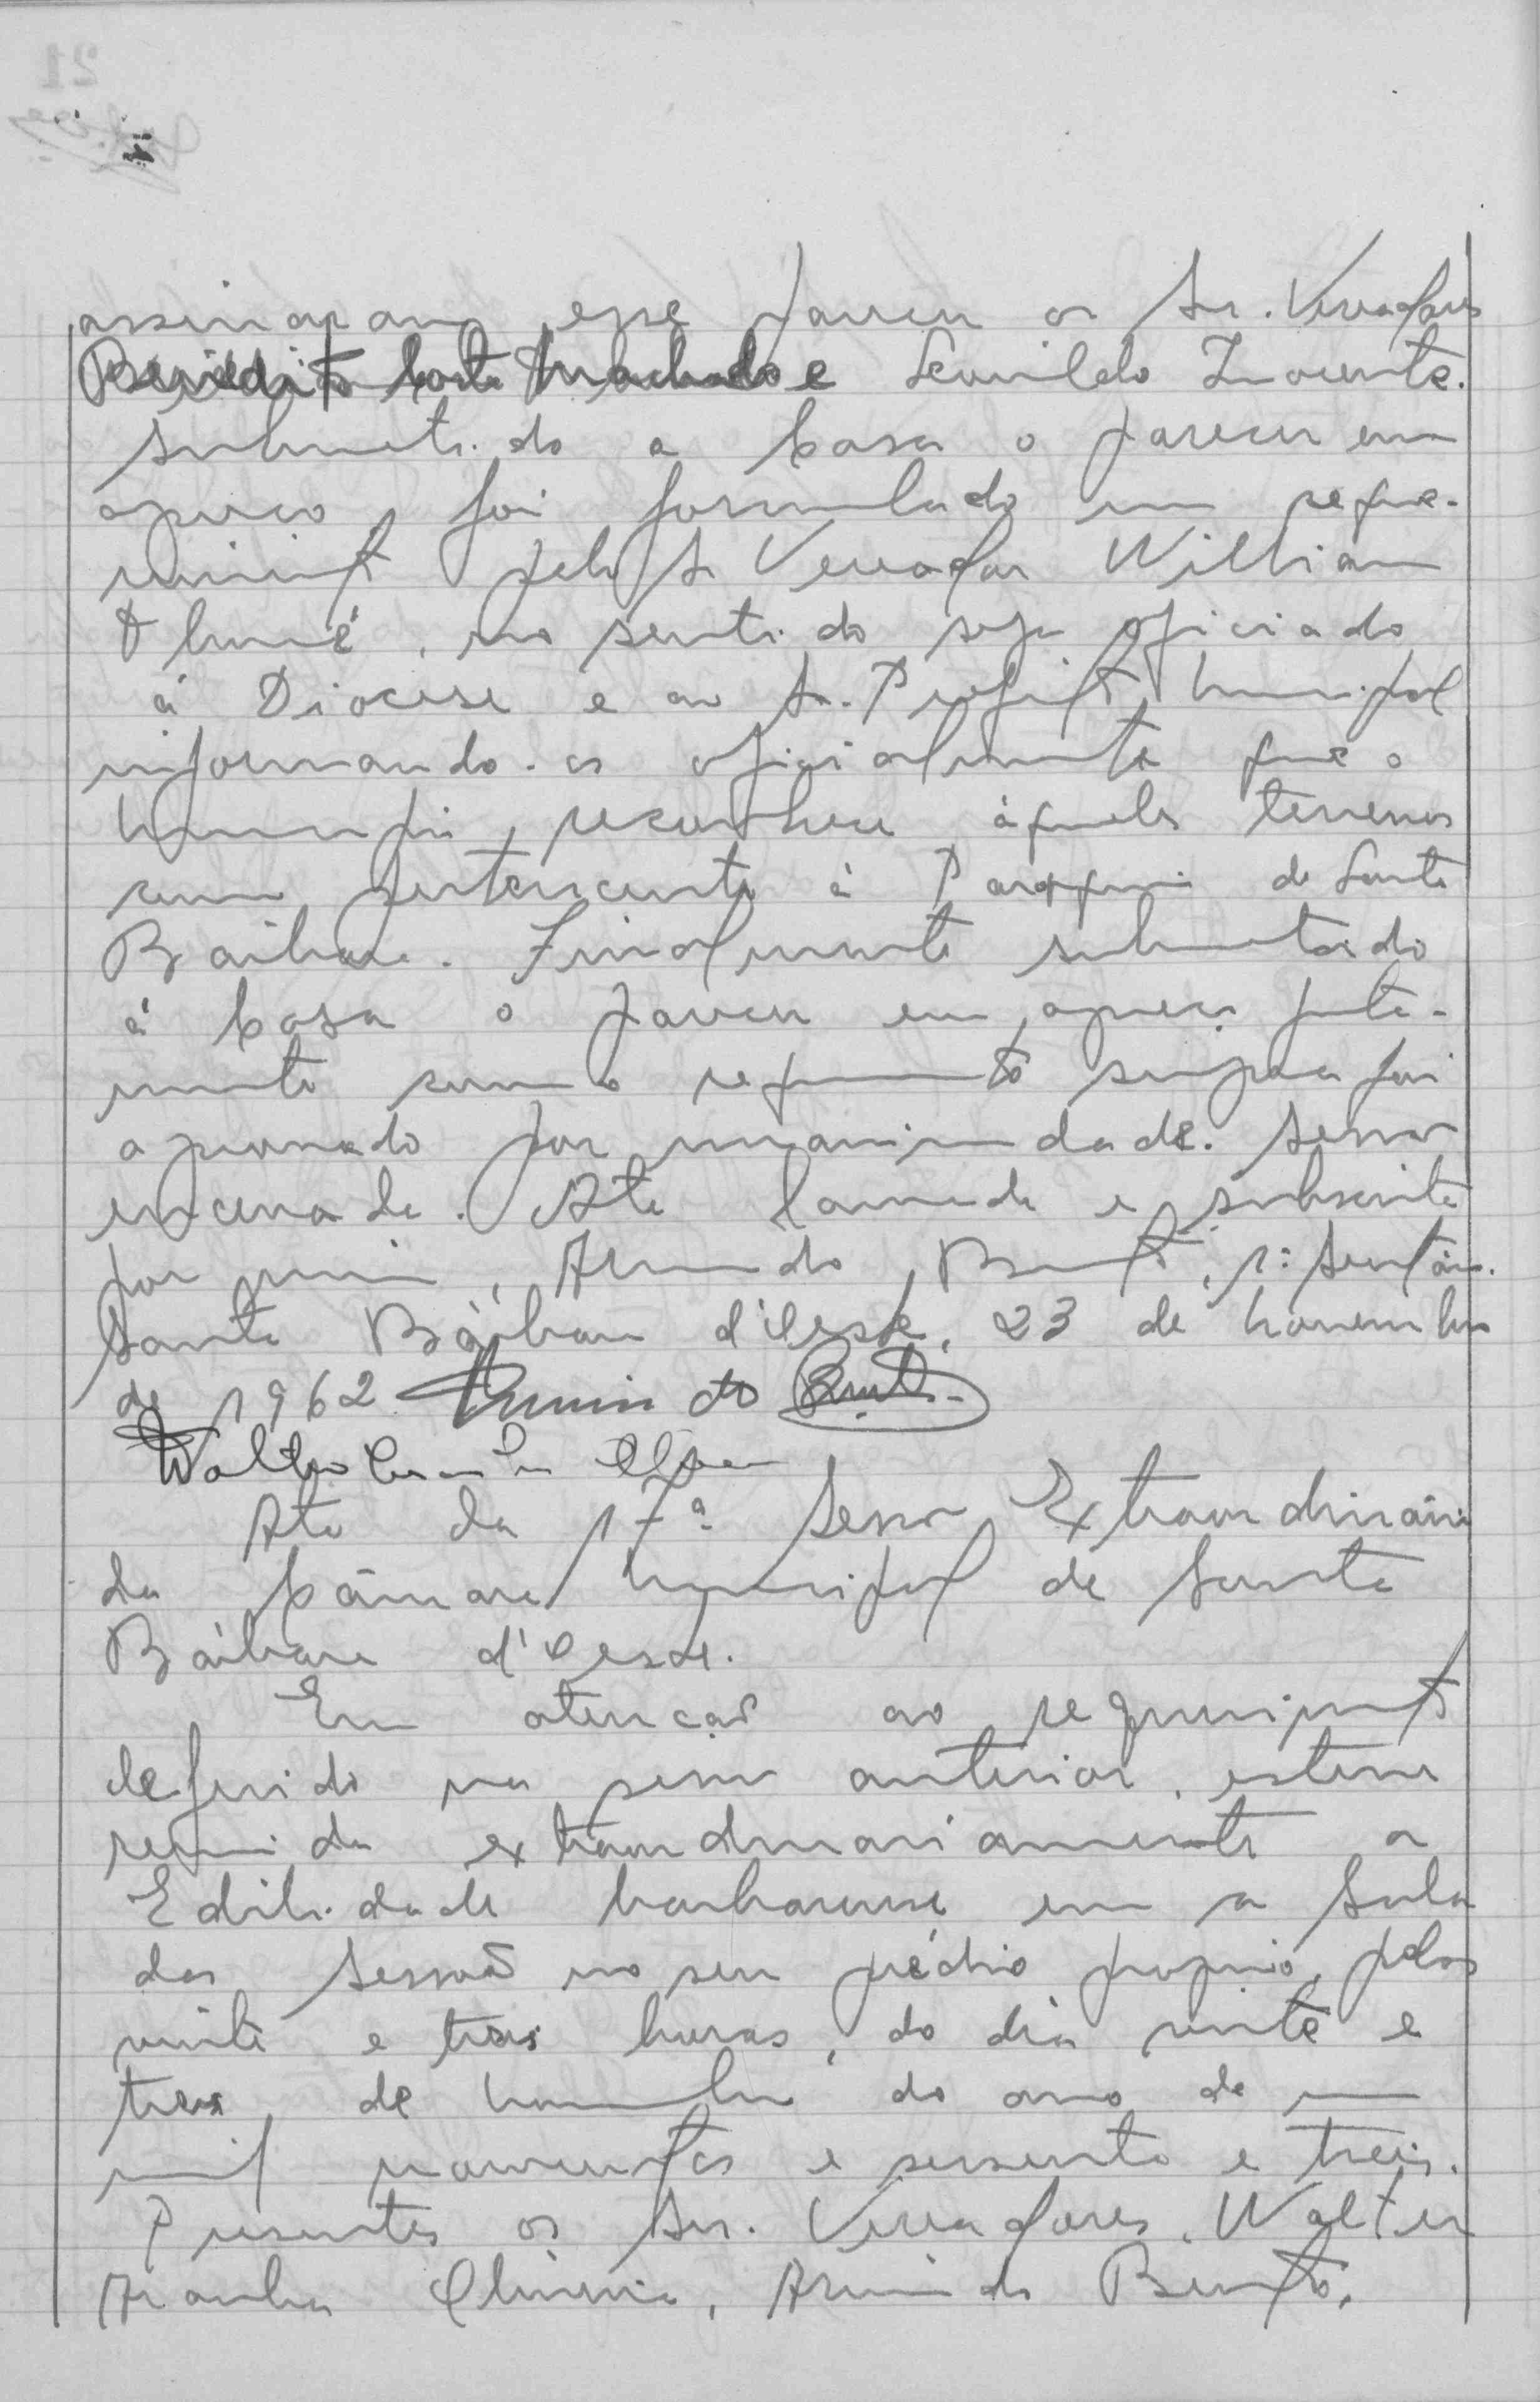 assinaram esse parecer os Sr. Vereadores
Benedito Costa Machado e Leonildo Inocente.
Submetido a Casa o parecer em
apreço, foi formulado um reque-
rimento pelo Sr Vereador Willian
no sentido seja oficiado
á Diocese e ao Sr. Prefeito Municipal
informando-os oficialmente que o
Municipio, reconhece áqueles terrenos
como pertencente á Paroquia de Santa
Bárbara. Finalmente submetido
á Casa o parecer em apreço junta-
mente com o requerimento supra foi
aprovado por unanimidade. Sessão
encerrada. Ata lavrada e subscrita
por mim, Armindo Bento, 1º Secretário.
Santa Bárbara d'Oeste, 23 de novembro
de 1962 Armindo Bento
Walter
Ata da 17ª Sessão Extraordinária
da Câmara Municipal de Santa
Bárbara d'Oeste.
Em atenção ao requerimento
deferido na sessão anterior, esteve
reunida extraordinariamente a
Edilidade barbarense em a sala
das Sessões no seu prédio proprio, pelas
vinte e tres horas, do dia vinte e
tres de novembro do ano de um
mil novecentos e sessenta e treis.
Presentes os Srs. Vereadores, Walter
Aranha Oliveira, Armindo Bento,